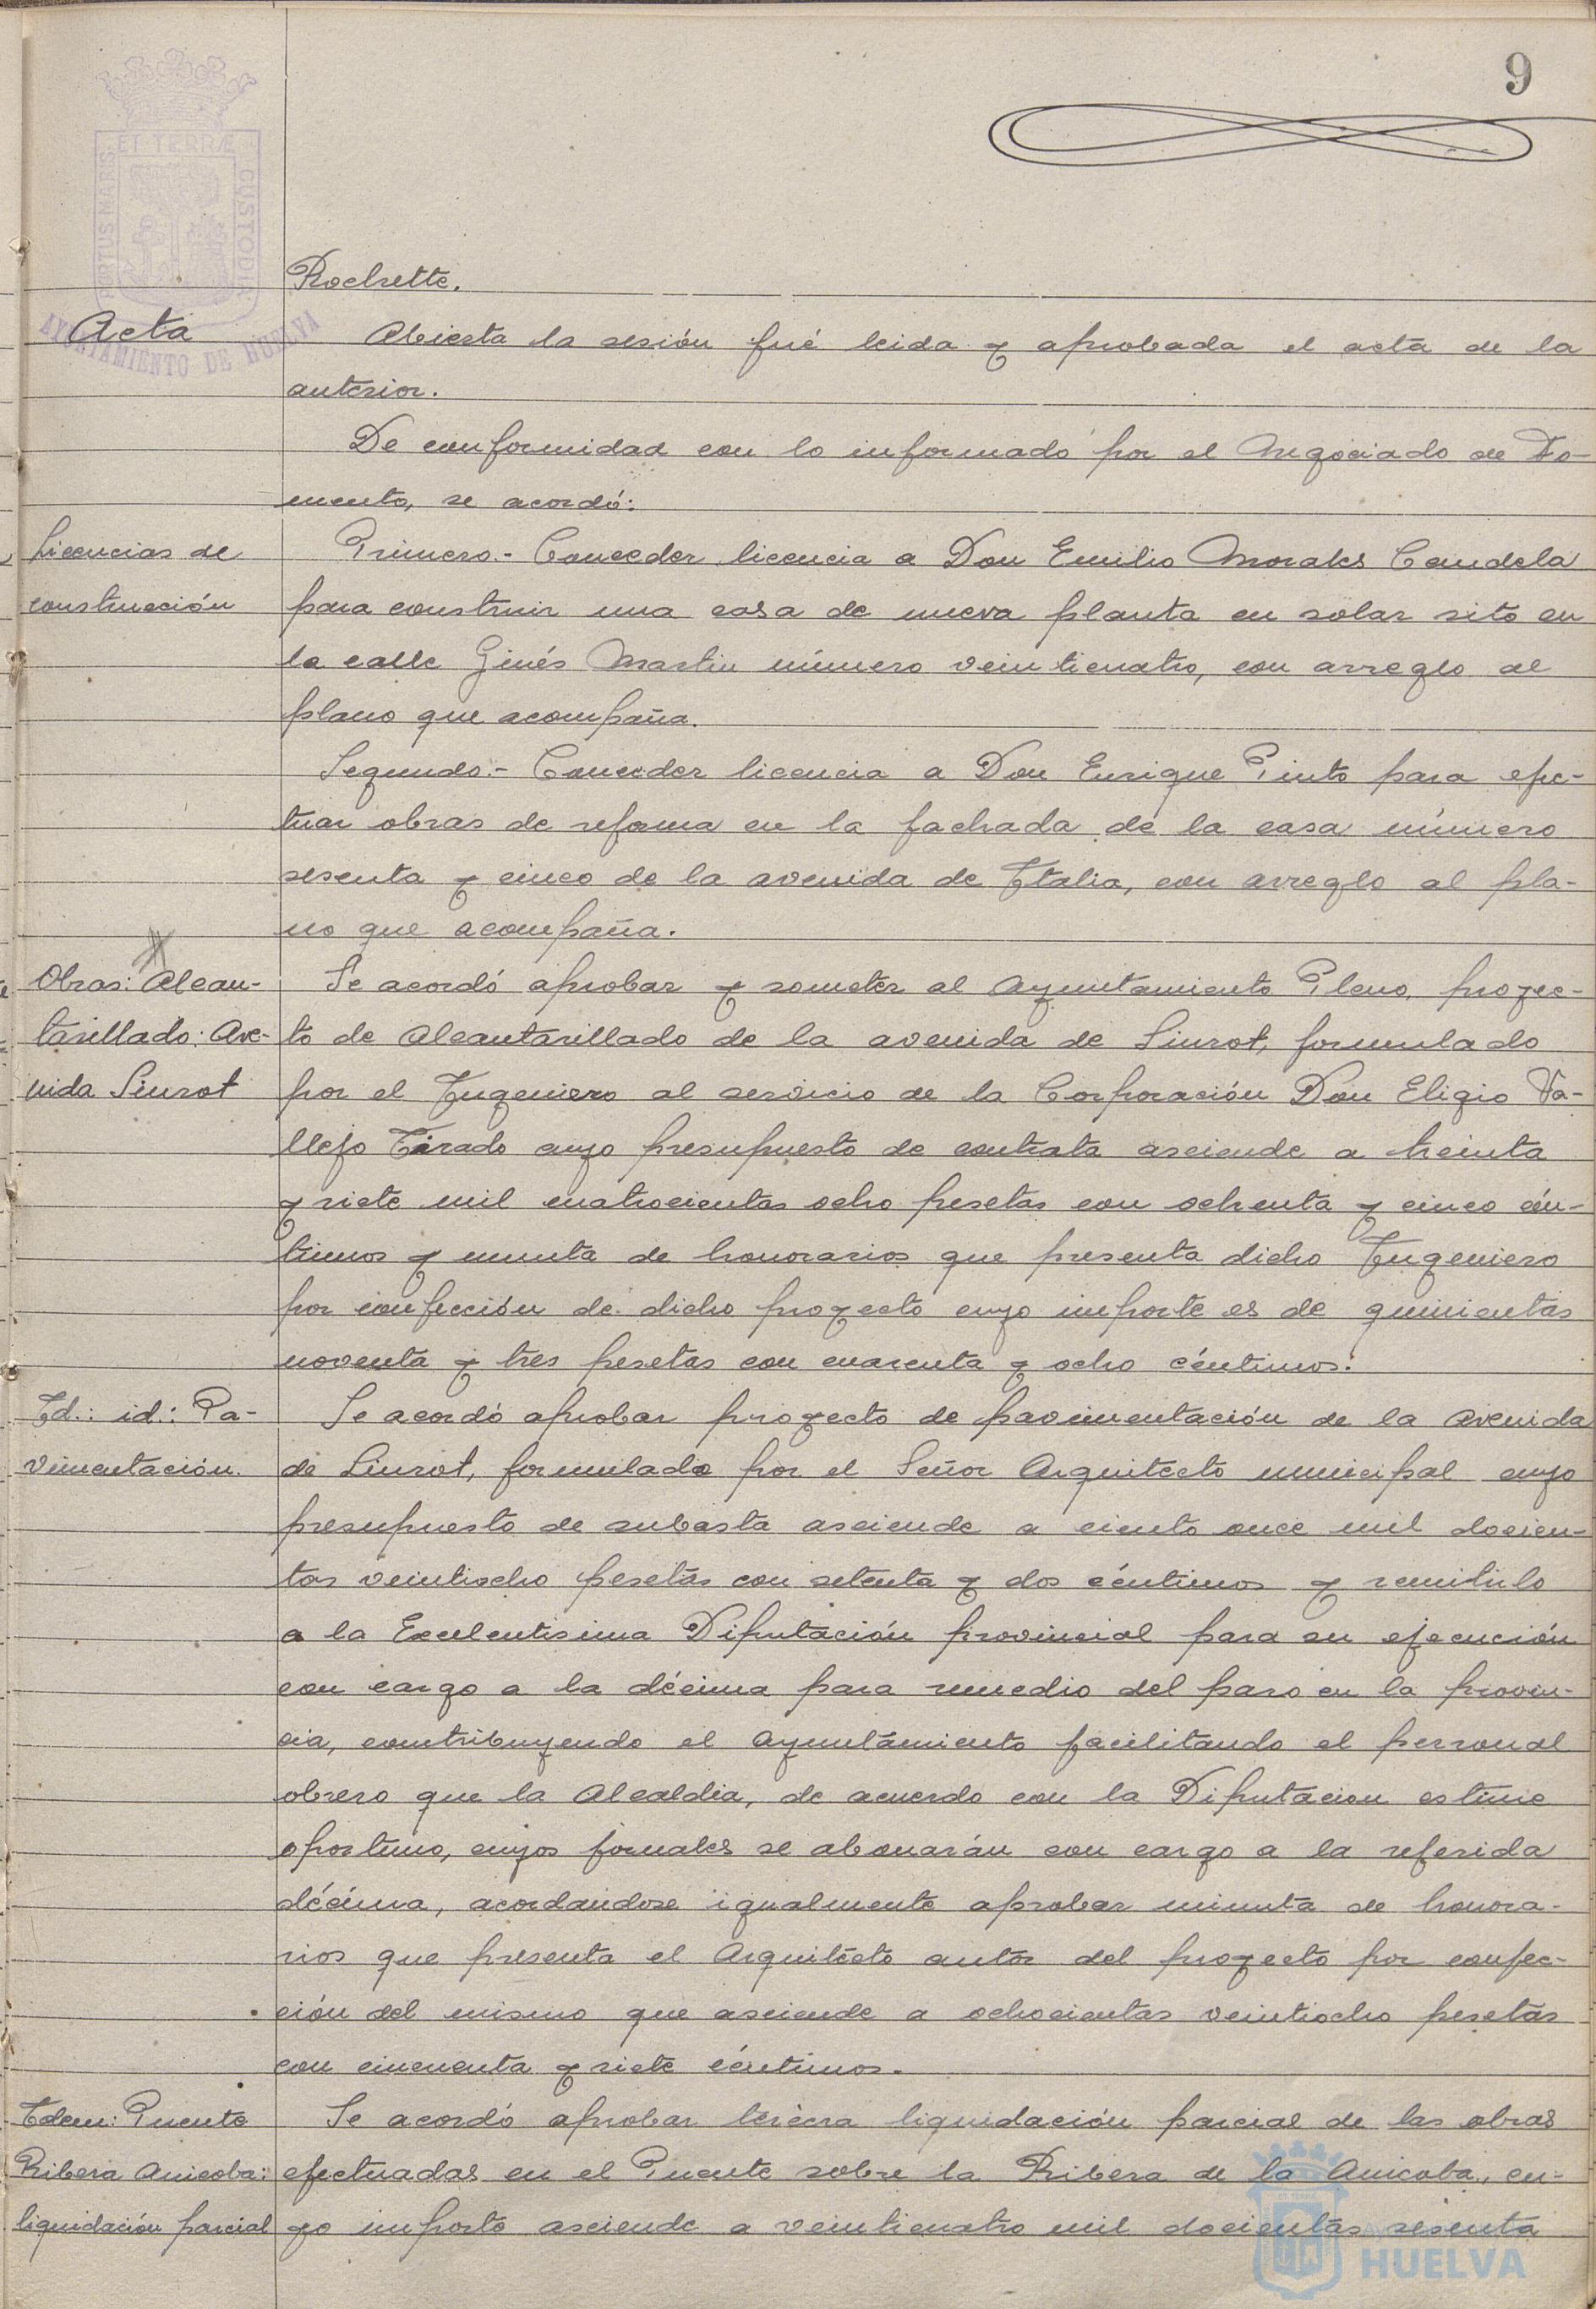 9
PORTUS MARIS ET TERRÆ CUSTODIA
AYUNTAMIENTO DE HUELVA
Rochette.
Acta
Abierta la sesión fué leida y aprobada el acta de la
anterior.
De conformidad con lo informado por el Negociado de Fo-
mento, se acordó:
Licencias de
construcción
Primero.- Conceder licencia a Don Emilio Morales Candela
para construir una casa de nueva planta en solar sito en
la calle Ginés Martin número veinticuatro, con arreglo al
plano que acompaña.
Segundo.- Conceder licencia a Don Enrique Pinto para efec-
tuar obras de reforma en la fachada de la casa número
sesenta y cinco de la avenida de Italia, con arreglo al pla-
no que acompaña.
Obras: Alcan-
tarillado: Ave-
nida Siurot
Se acordó aprobar y someter al Ayuntamiento Pleno, proyec-
to de Alcantarillado de la avenida de Siurot, formulado
por el Ingeniero al servicio de la Corporación Don Eligio Va-
llejo Tirado cuyo presupuesto de contrata asciende a treinta
y siete mil cuatrocientas ocho pesetas con ochenta y cinco cén-
timos y minuta de honorarios que presenta dicho Ingeniero
por confección de dicho proyecto cuyo importe es de quinientas
noventa y tres pesetas con cuarenta y ocho céntimos.
Id.: id.: Pa-
vimentación.
Se acordó aprobar proyecto de pavimentación de la Avenida
de Siurot, formulado por el Señor Arquitecto municipal cuyo
presupuesto de subasta asciende a ciento once mil docien-
tas veintiocho pesetas con setenta y dos céntimos y remitirlo
a la Excelentisima Diputación provincial para su ejecución
con cargo a la décima para remedio del paro en la provin-
cia, contribuyendo el Ayuntamiento facilitando el personal
obrero que la Alcaldia, de acuerdo con la Diputacion estime
oportuno, cuyos jornales se abonarán con cargo a la referida
décima, acordandose igualmente aprobar minuta de honora-
rios que presenta el Arquitecto autor del proyecto por confec-
ción del mismo que asciende a ochocientas veintiocho pesetas
con cincuenta y siete céntimos.
Idem: Puente
Ribera Anicoba:
liquidación parcial
Se acordó aprobar tercera liquidación parcial de las obras
efectuadas en el Puente sobre la Ribera de la Anicoba, cu-
yo importe asciende a veinticuatro mil docientas sesenta
HUELVA